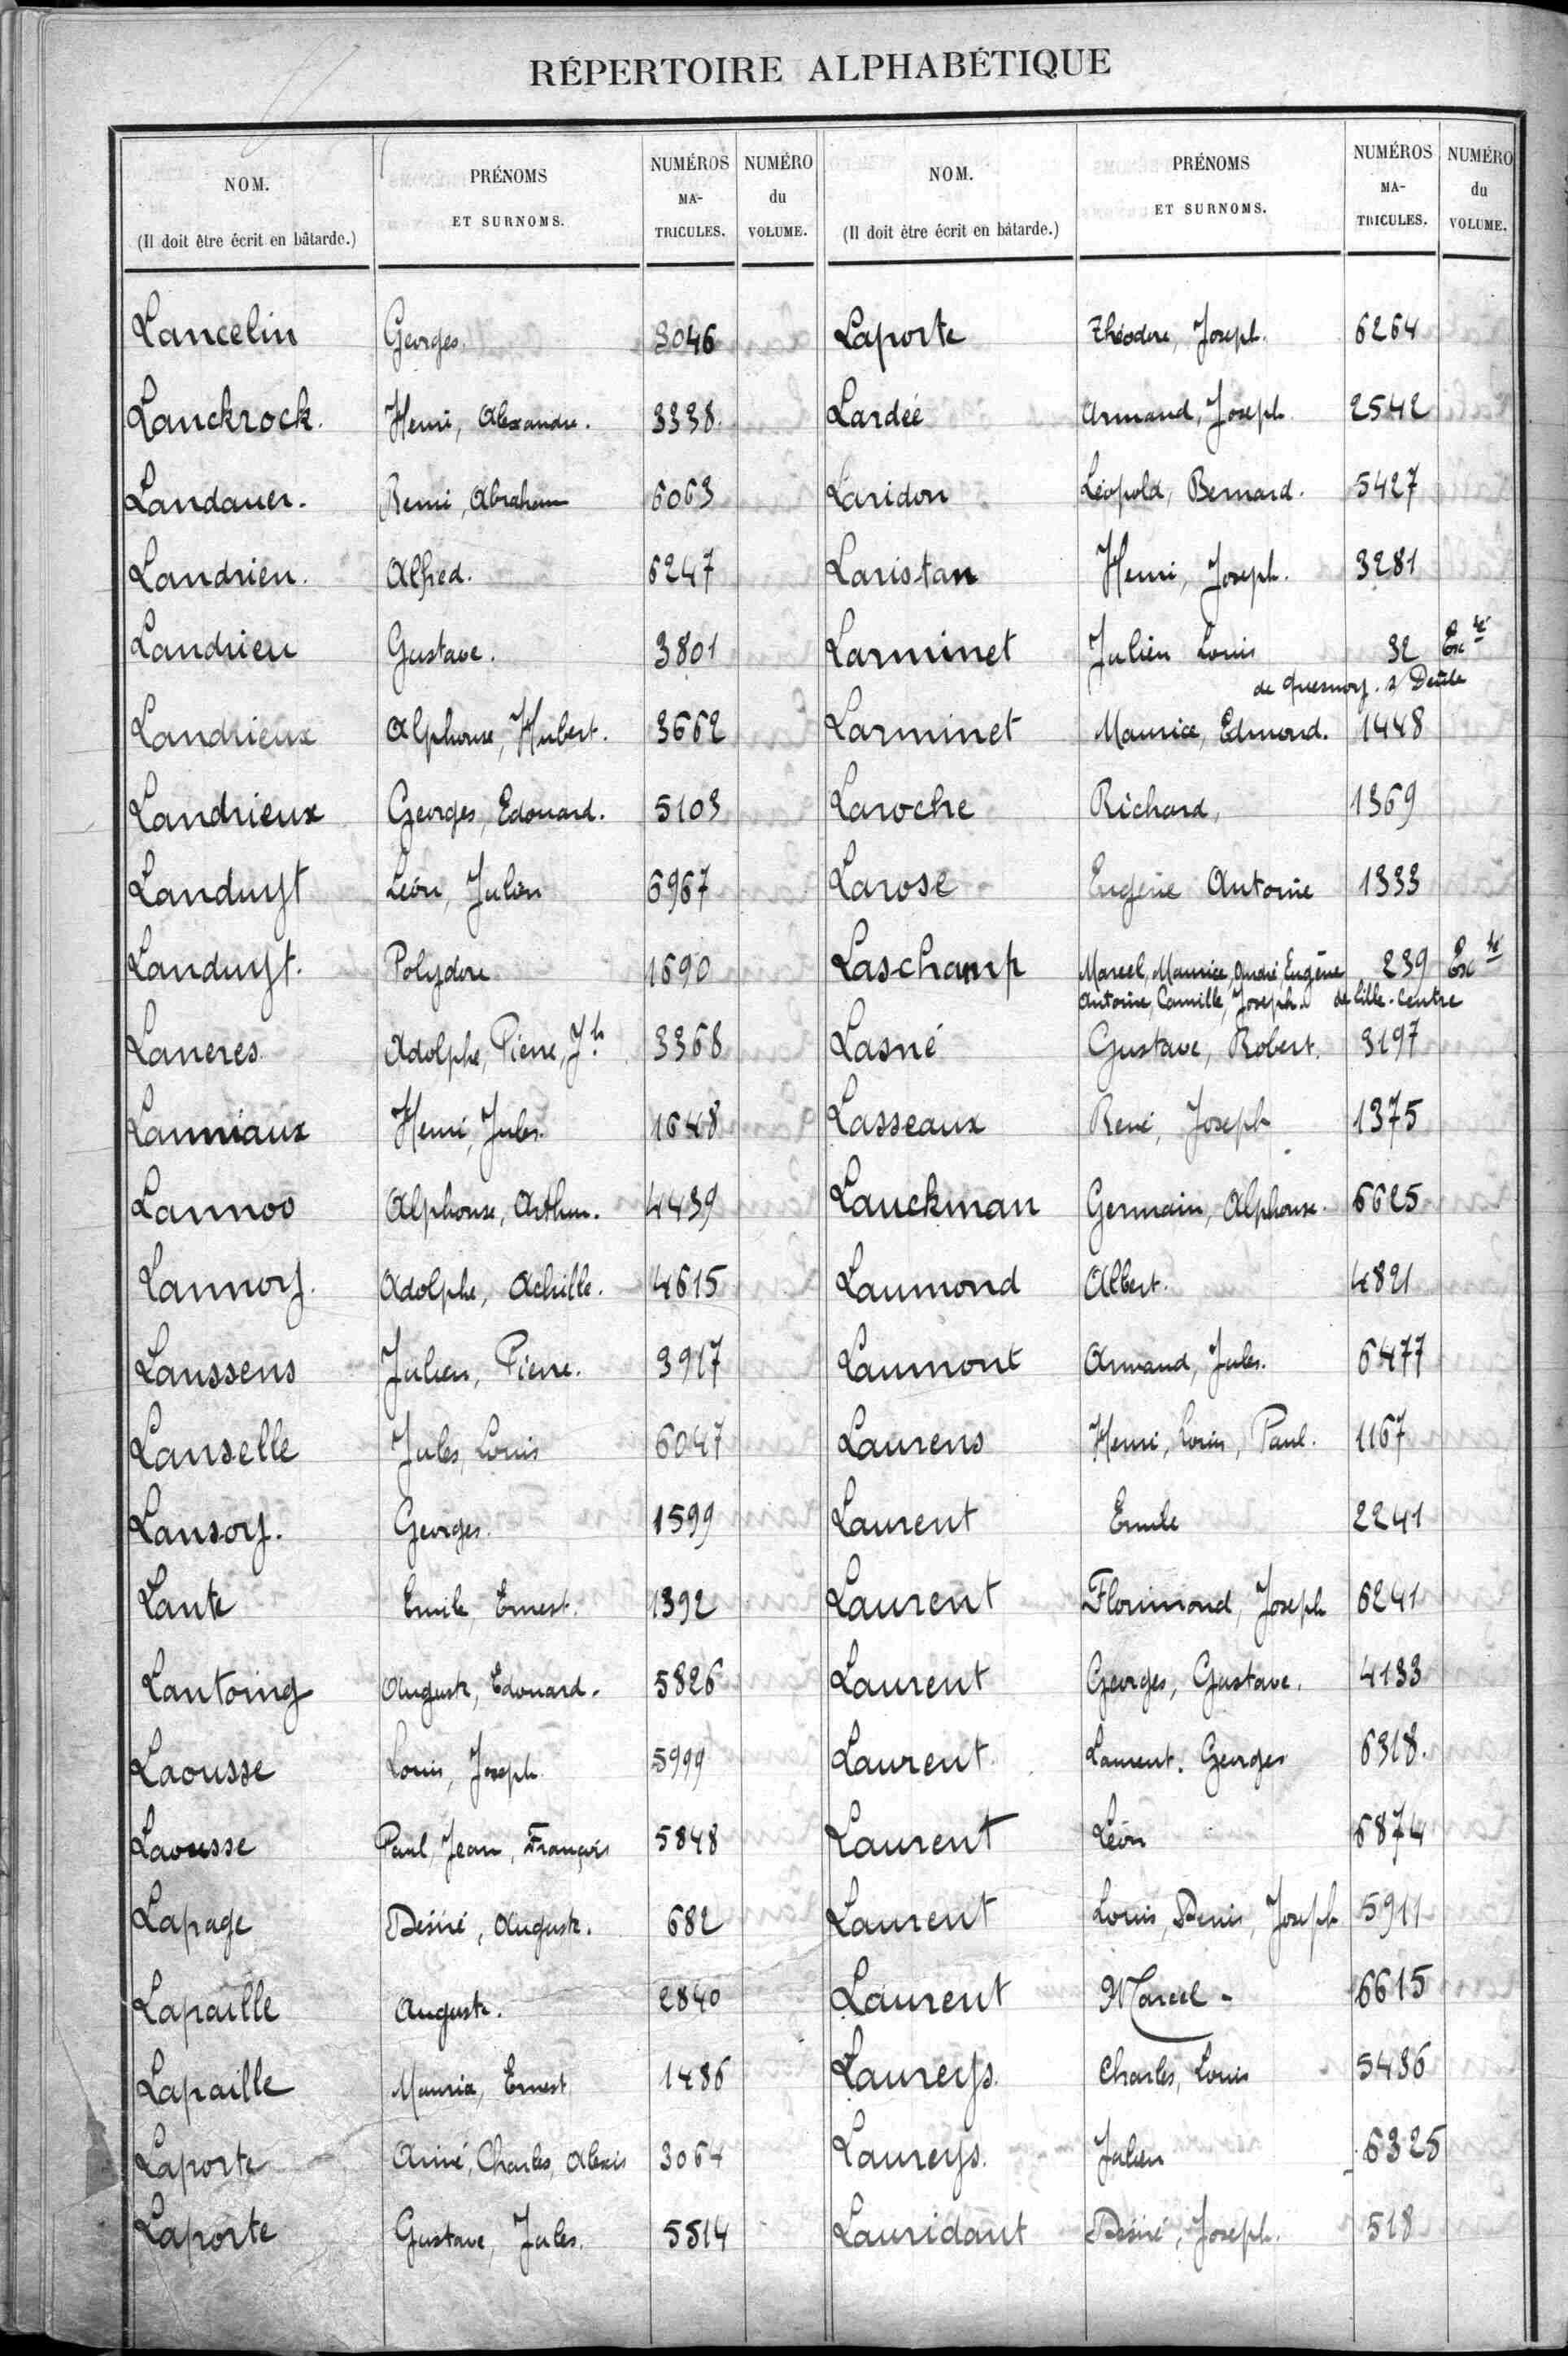 RÉPERTOIRE ALPHABÉTIQUE
NOM. (Il doit être écrit en bâtarde.) PRÉNOMS ET SURNOMS. NUMÉROS MA-TRICULES. NUMÉRO du VOLUME.
Lancelin Georges. 3046
Lanckrock. Henri, Alexandre. 3338.
Landauer. Remi, Abraham 6063
Landrieu. Alfred. 6247
Landrieu Gustave. 3801
Landrieux Alphonse, Hubert. 3662
Landrieux Georges, Edouard. 5103
Landuyt Léon, Julien 6967
Landuyt. Polydore 1690
Laneres Adolphe, Pierre, Jh. 3368
Lanniaux Henri, Jules. 1648
Lannoo Alphonse, Arthur. 4439
Lannoy. Adolphe, Achille. 4615
Lanssens Julien, Pierre. 3917
Lanselle Jules, Louis 6047
Lansoy. Georges. 1599
Lante Emile, Ernest. 1392
Lantoing Auguste, Edouard. 5826
Laousse Louis, Joseph 5999
Laousse Paul, Jean, François 5848
Lapage Désiré, Auguste. 682
Lapaille Auguste. 2840
Lapaille Maurice, Ernest 1486
Laporte Aimé, Charles, Alexis 3064
Laporte Gustave, Jules. 5514
NOM. (Il doit être écrit en bâtarde.) PRÉNOMS ET SURNOMS. NUMÉROS MA-TRICULES. NUMÉRO du VOLUME.
Laporte Théodore, Joseph. 6264
Lardée Armand, Joseph 2542
Laridon Léopold, Bernard. 5427
Laristan Henri, Joseph. 3281
Larminet Julien Louis 32 Exc té
de Quesnoy. s/ Deûle
Larminet Maurice, Edmond. 1448
Laroche Richard, 1369
Larose Eugène Antoine 1333
Laschamp Marcel, Maurice, André, Eugène 239 Exc té
Antoine, Camille, Joseph. de Lille-Centre
Lasné Gustave, Robert. 3197
Lasseaux René, Joseph 1375
Lauckman Germain, Alphonse. 6625
Laumond Albert. 4821
Laumont Armand, Jules. 6477
Laurens Henri, Louis, Paul. 1167
Laurent Emile 2241
Laurent Florimond, Joseph 6241
Laurent Georges, Gustave. 4133
Laurent. Laurent. Georges 6318.
Laurent Léon 6874
Laurent Louis, Denis, Joseph 5911
Laurent Marcel - 6615
Laureys. Charles, Louis 5436
Laureys. Julien 6325
Lauridant Désiré, Joseph. 518